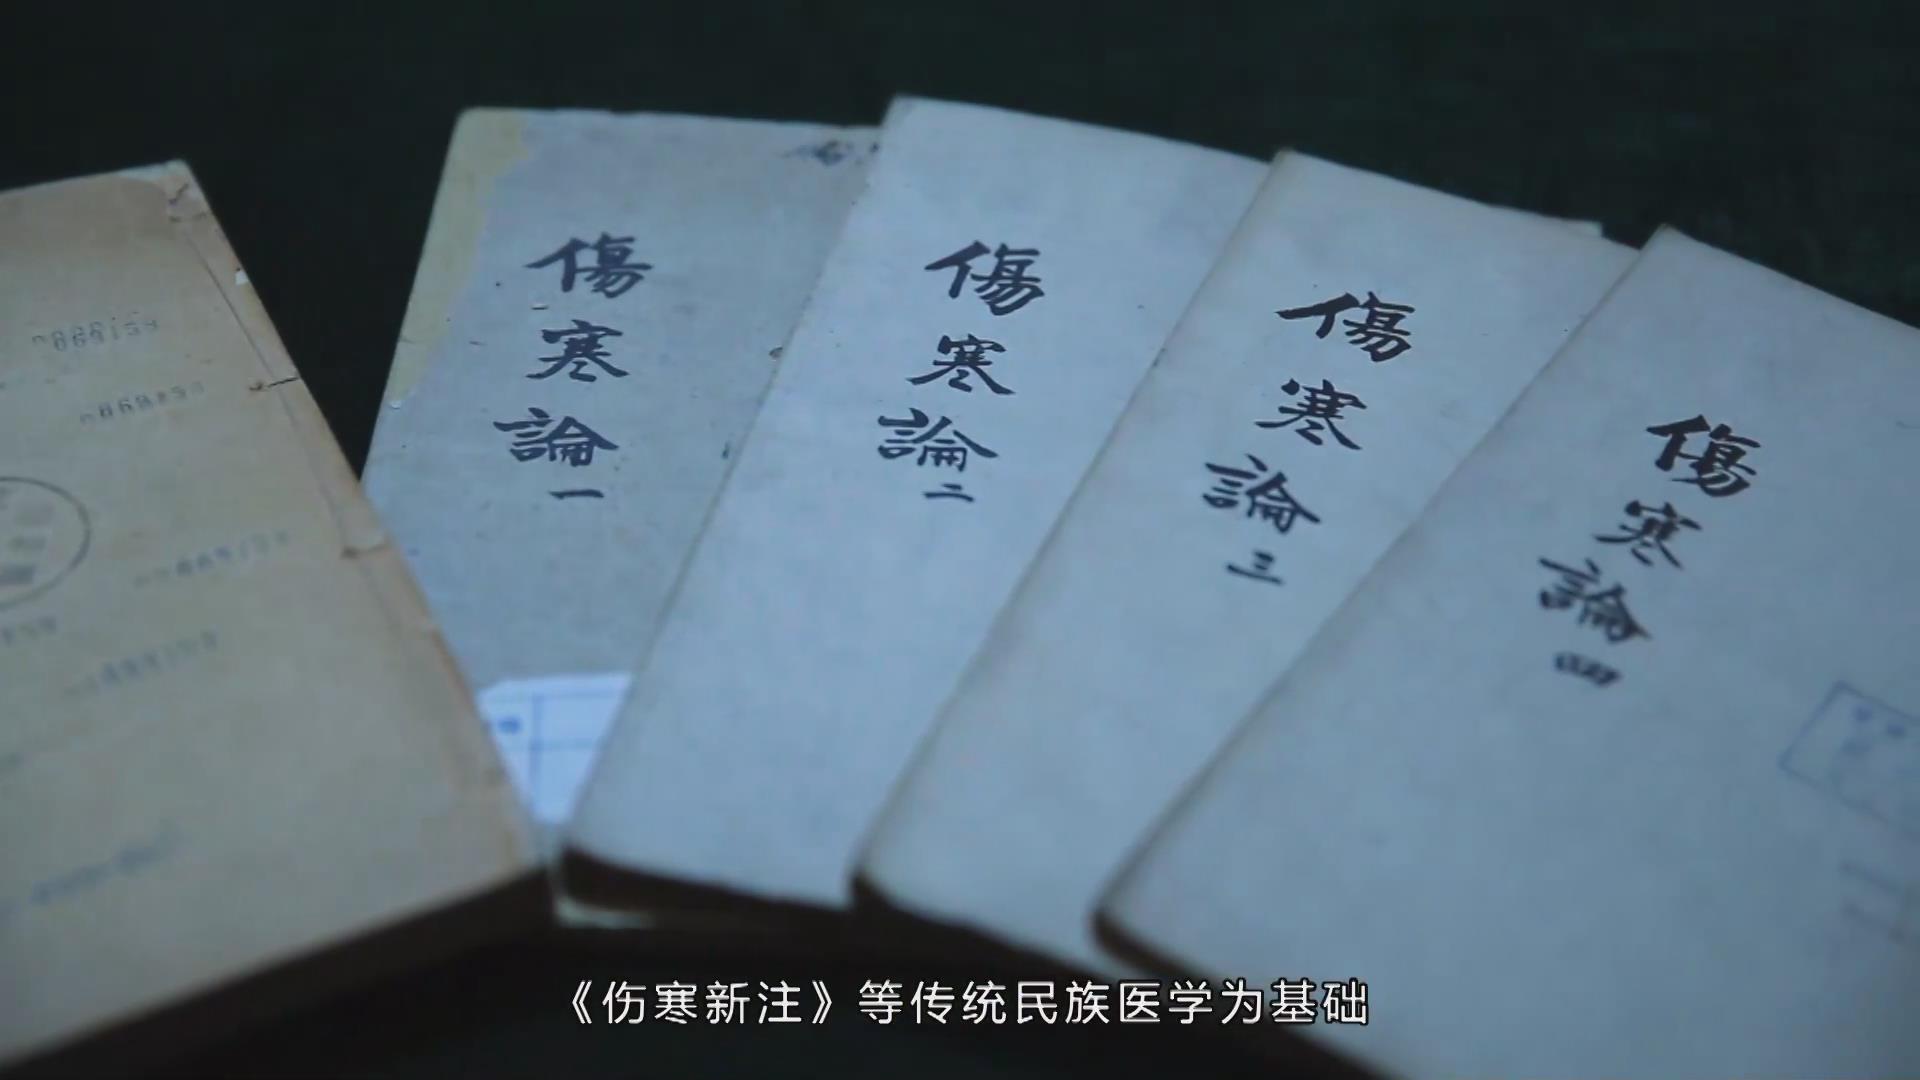 傷寒論一
傷寒論二
傷寒論三
傷寒論四
《伤寒新注》等传统民族医学为基础